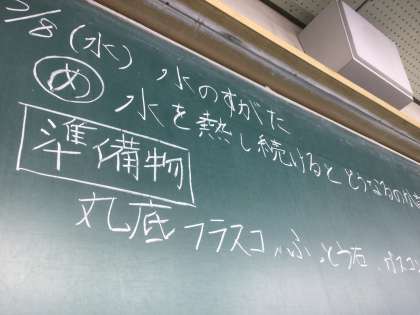 2/8(水) 水のすがた
め 水を熱し続けるとどうなるのか
準備物
丸底フラスコ、ふっとう石、ガスコン